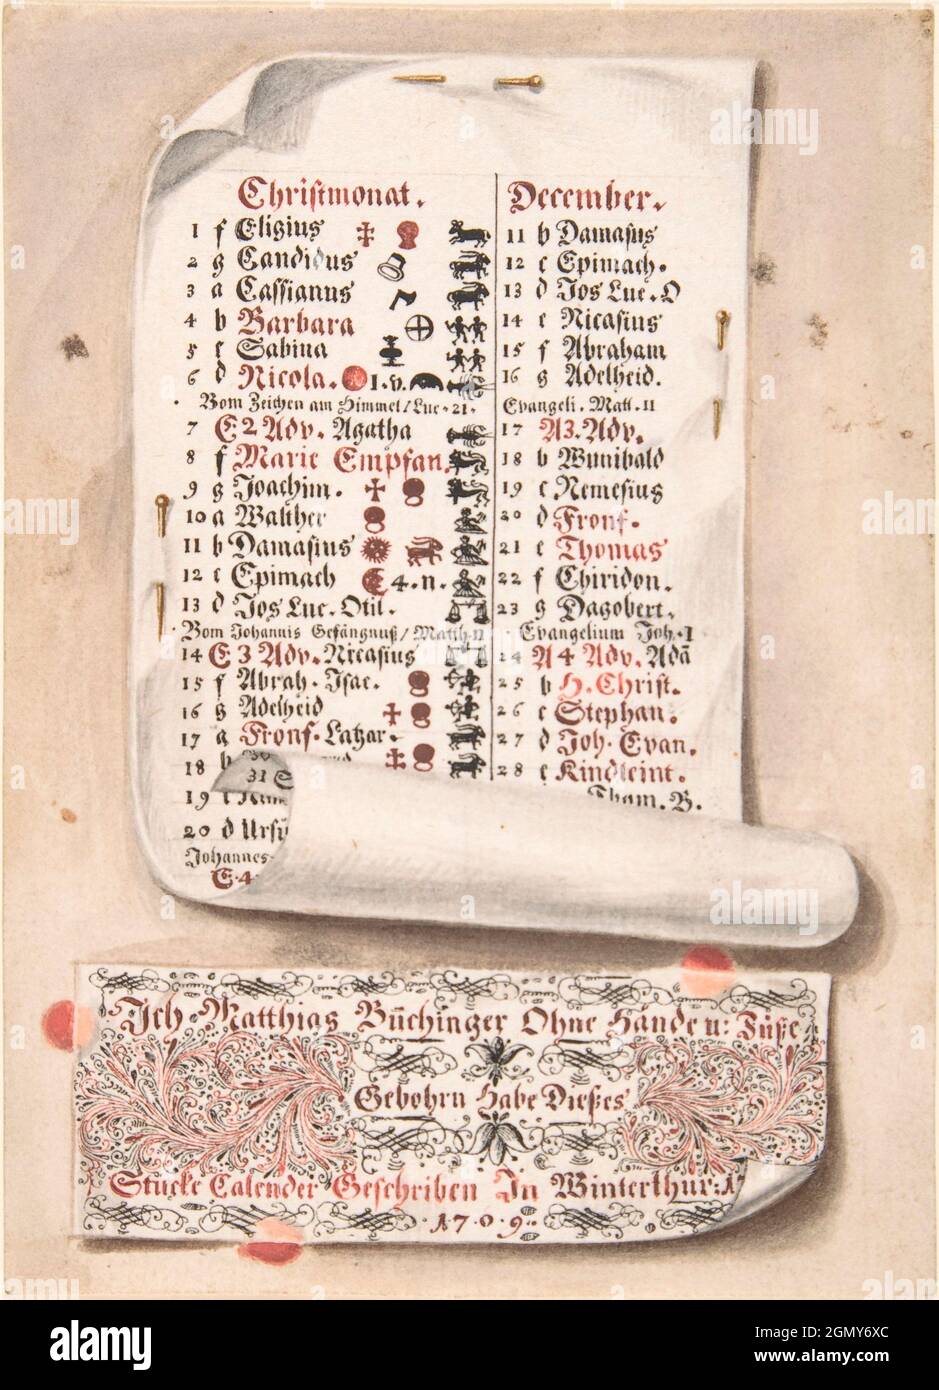 Christmonat.
1 f Eligius
2 g Candidus
3 a Cassianus
4 b Barbara
5 c Sabina
6 d Nicola. 1.v.
Vom Zeichen am Himmel/Luc.21.
7 E 2 Adv. Agatha
8 f Marie Empfan.
9 g Joachim.
10 a Walther
11 b Damasius
12 c Epimach 4.n.
13 d Jos Luc. Otil.
Vom Johannis Gefängnuß/Matth.11
14 E 3 Adv. Nicasius
15 f Abrah. Isac.
16 g Adelheid
17 a Fronf. Latzar.
18 b
31 S
19 c
20 d Ursi
Johannes
E.4
December.
11 b Damasus
12 c Epimach.
13 d Jos Luc.O
14 e Nicasius
15 f Abraham
16 g Adelheid.
Evangeli. Matt.11
17 A3.Adv.
18 b Wunibald
19 c Nemesius
20 d Fronf.
21 e Thomas
22 f Chiridon.
23 g Dagobert.
Evangelium Joh.1
24 A4 Adv. Adã
25 b H.Christ.
26 c Stephan.
27 d Joh. Evan.
28 e Kindleint.
Tham.B.
Ich Matthias Büchinger Ohne Hände u: Füße
Gebohrn Habe Dießes
Stucke Calender Geschriben In Winterthur:17
.1709.
alamy
Image ID: 2GMY6XC
www.alamy.com